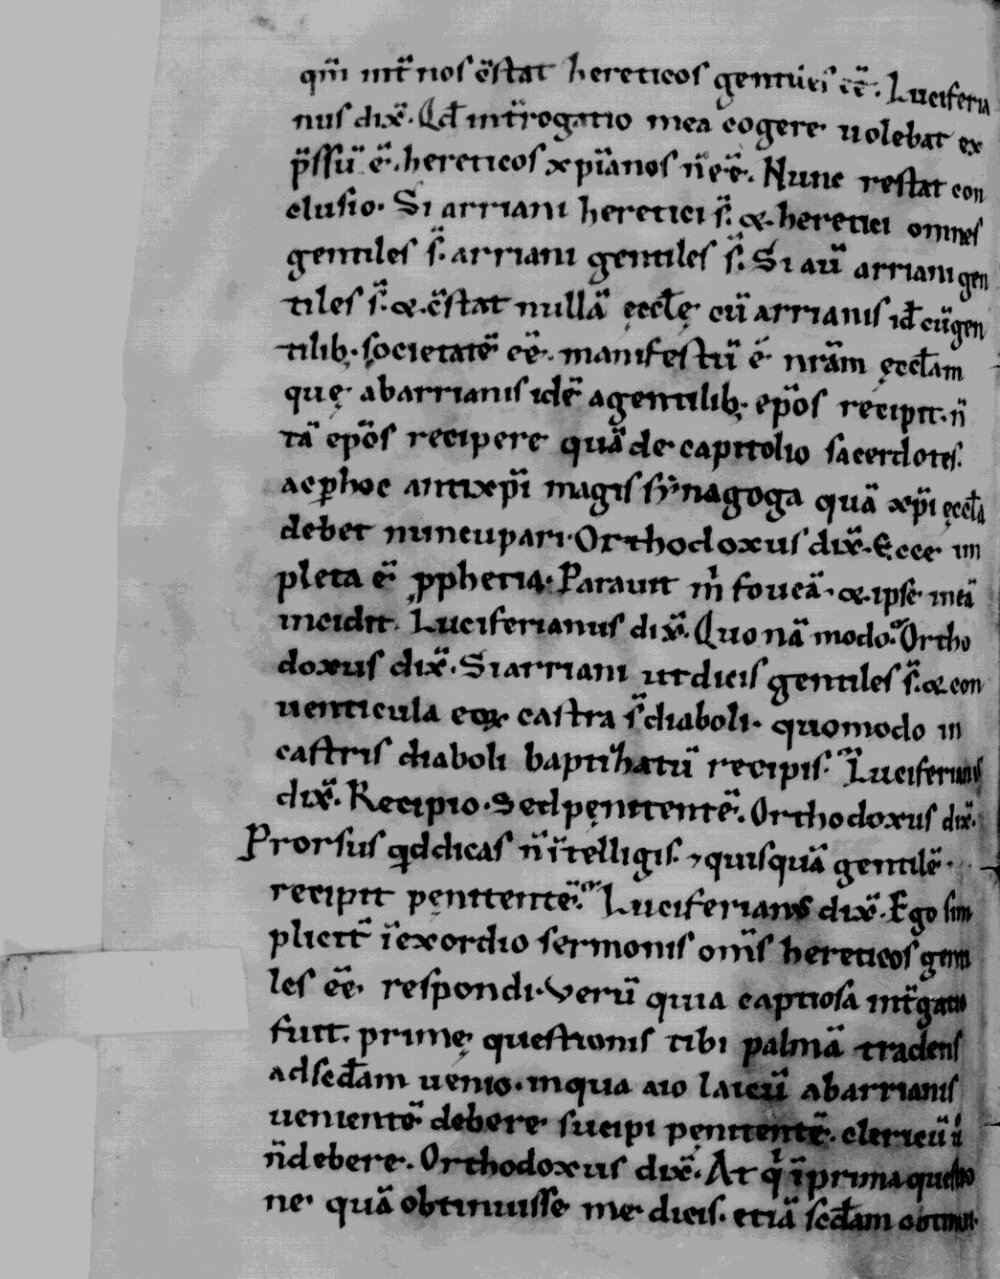 qm̄ int̄ nos c̄stat hereticos gentiles eē. Luciferia
nus dix̄. Qd̄ int̄rogatio mea cogere uolebat ex
p̄ssū ē. hereticos xp̄ianos n̄ eē. Nunc restat con
clusio. Si arriani heretici s̄. & heretici omnes
gentiles s̄. arriani gentiles s̄. Si aū arriani gen
tiles s̄. & c̄stat nullā ęccl̄ę cū arrianis id̄ cū gen
tilib; societatē eē. manifestū ē nrām ęccl̄am
quę ab arrianis idē a gentilib; ep̄os recipit. n̄
tā ep̄os recipere quā de capitolio sacerdotes.
ac ꝑhoc antixp̄i magis synagoga quā xp̄i ęccl̄a
debet nuncupari. Orthodoxus dix̄. Ecce im
pleta ē ꝓphetia. Parauit m̄ foueā. & ipse in eā
incidit. Luciferianus dix̄. Quo nā modo? Ortho
doxus dix̄. Si arriani ut dicis gentiles s̄. & con
uenticula eoꝝ castra s̄ diaboli. quomodo in
castris diaboli baptizatū recipis? Luciferianus
dix̄. Recipio. Sed pęnitentē. Orthodoxus dix̄.
Prorsus qd dicas n̄ intelligis. ⁊ quisquā gentilē
recipit pęnitentē? Luciferianus dix̄. Ego sim
plicit̄ ī exordio sermonis om̄s hereticos genti
les eē respondi. Verū quia captiosa int̄gatio
fuit. primę questionis tibi palmā tradens
ad sedam uenio. in qua aio laicū ab arrianis
uenientē debere sucipi pęnitentē. clericū ū
n̄ debere. Orthodoxus dix̄. At q̇ ī prima questio
ne quā obtinuisse me dicis. etiā sedam obtinui.